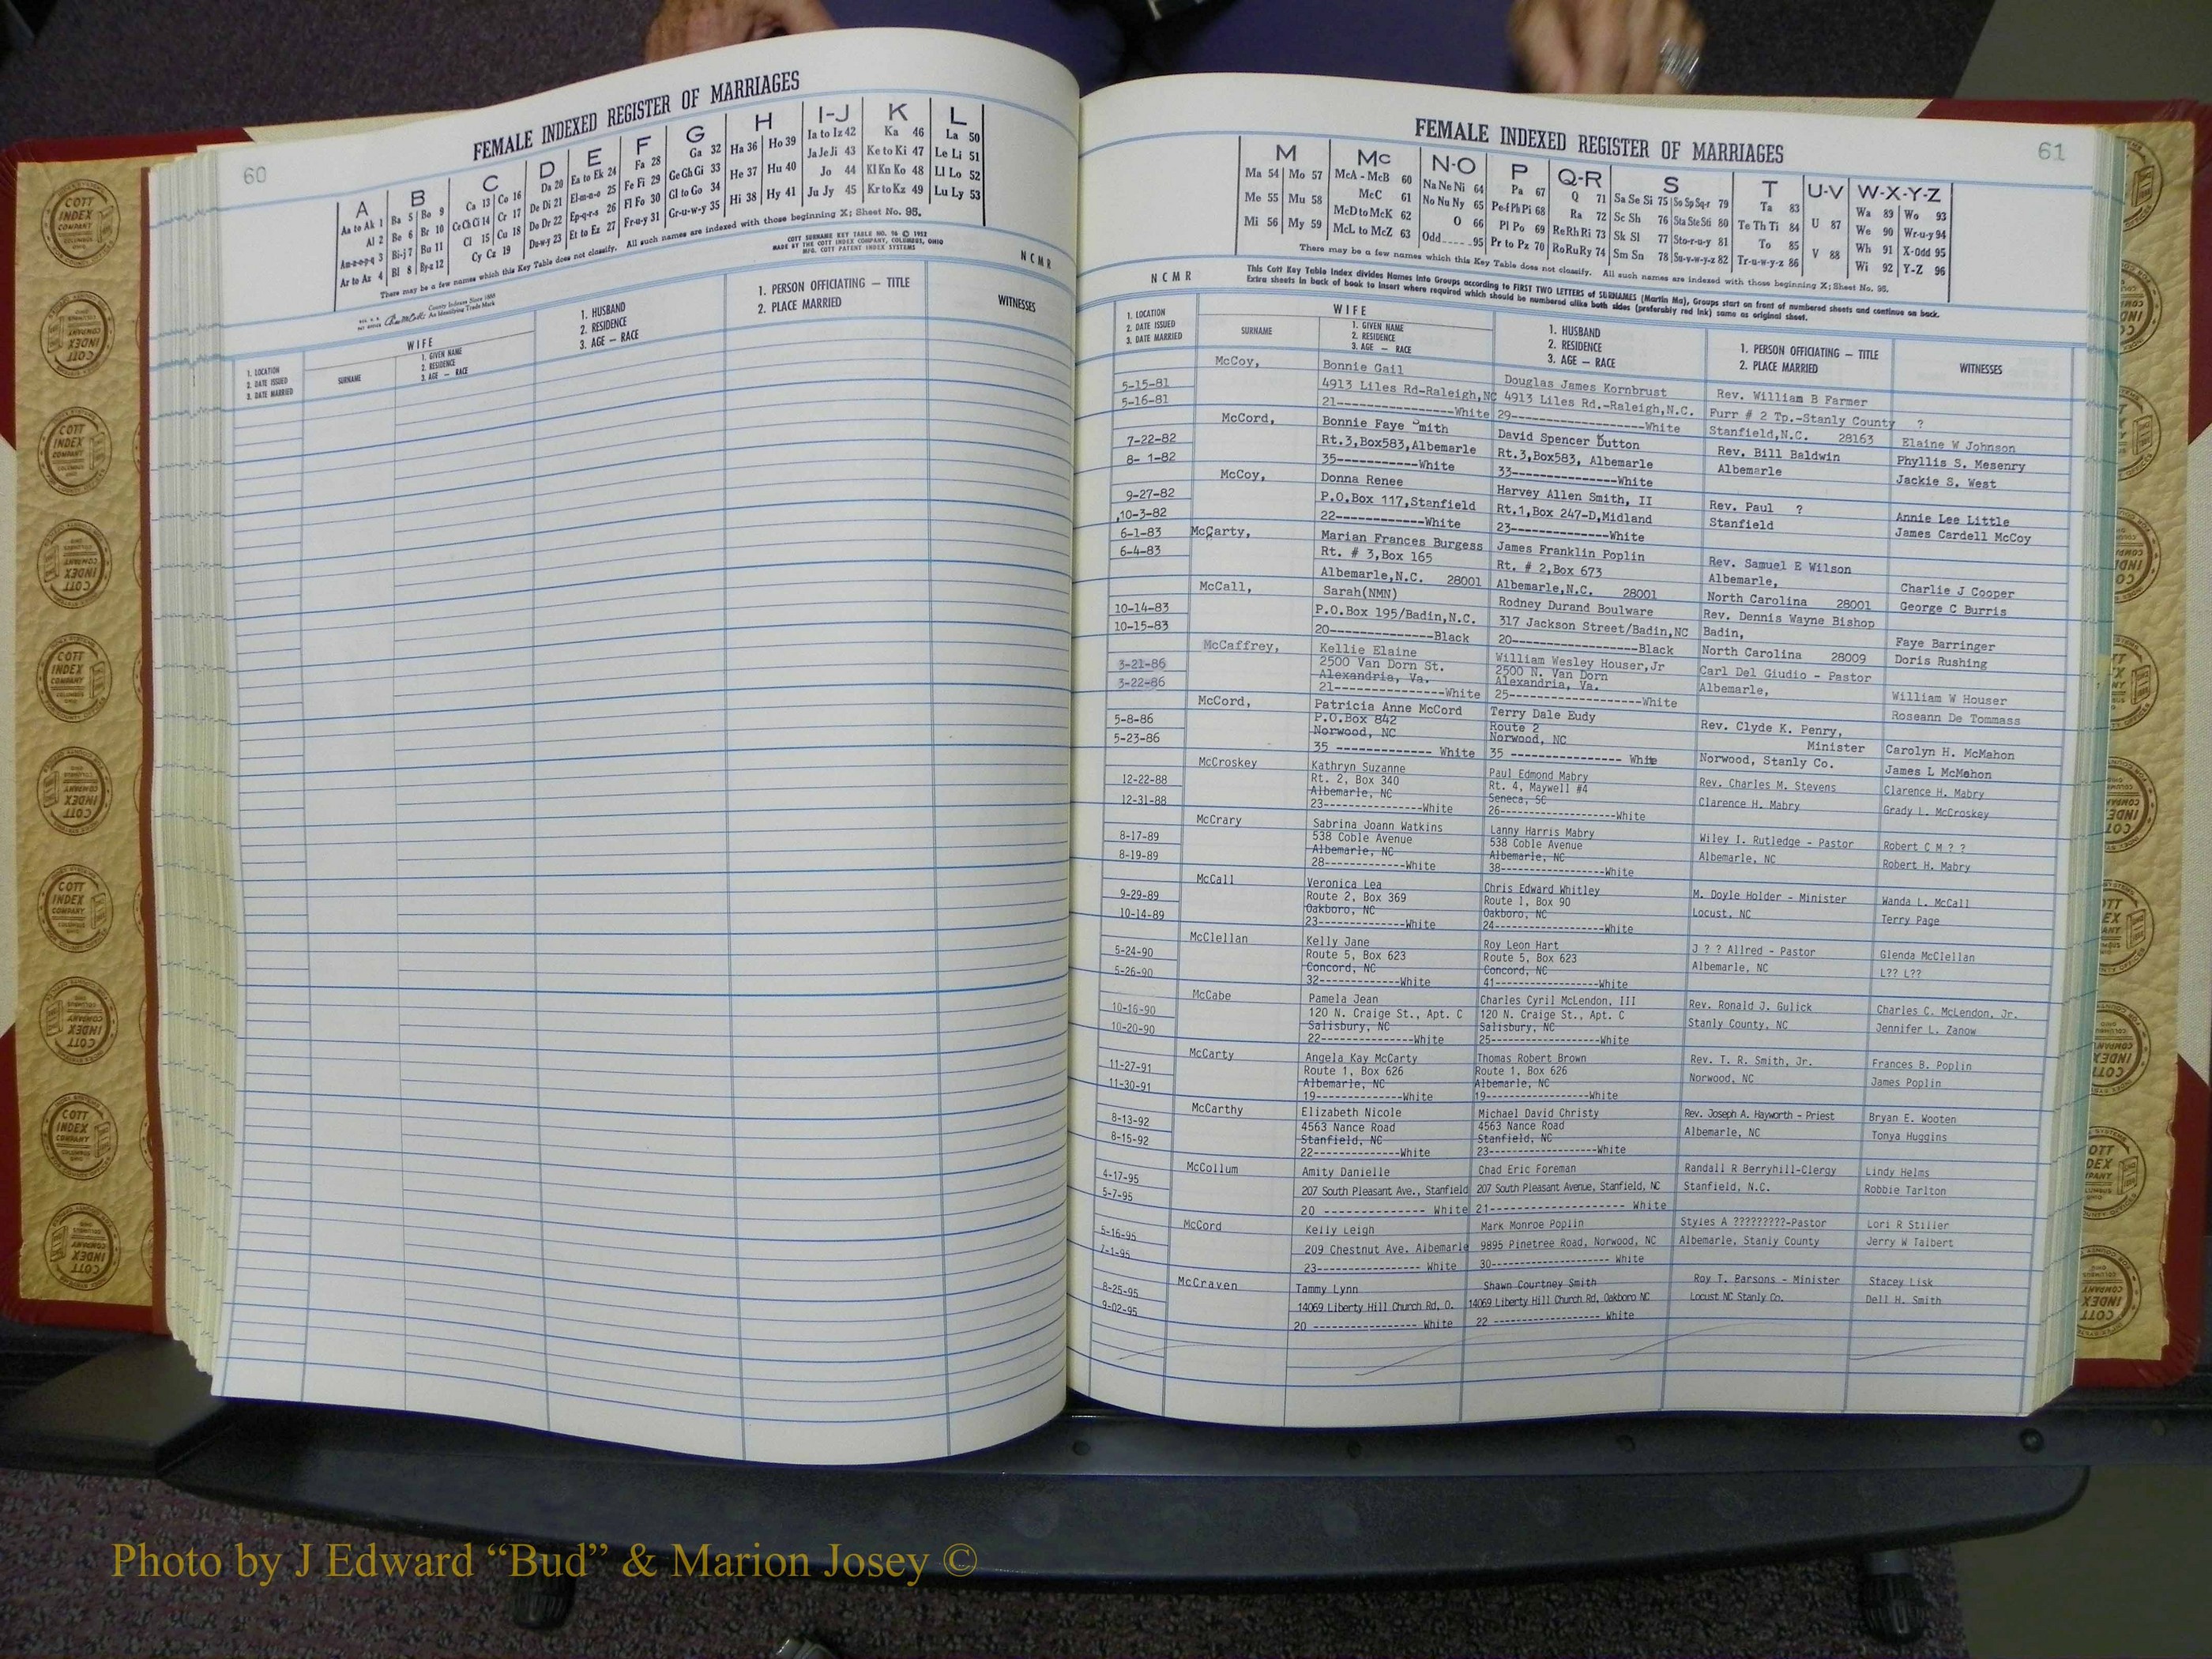 60
FEMALE INDEXED REGISTER OF MARRIAGES
A B C D E F G H I-J K L
Aa to Ak 1 Ba 5 Bo 9 Ca 13 Co 16 Da 20 Ea to Ek 24 Fa 28 Ga 32 Ha 36 Ho 39 Ia to Iz 42 Ka 46 La 50
Al 2 Be 6 Br 10 Ce Ch Ci 14 Cr 17 De Di 21 El-m-n-o 25 Fe Fi 29 Ge Gh Gi 33 He 37 Hu 40 Ja Je Ji 43 Ke to Ki 47 Le Li 51
Am-n-o-p-q 3 Bi-j 7 Bu 11 Cl 15 Cu 18 Do Dr 22 Ep-q-r-s 26 Fl Fo 30 Gl to Go 34 Hi 38 Hy 41 Jo 44 Kl Kn Ko 48 Ll Lo 52
Ar to Az 4 Bl 8 By-z 12 Cy Cz 19 Du-w-y 23 Et to Ez 27 Fr-u-y 31 Gr-u-w-y 35 Ju Jy 45 Kr to Kz 49 Lu Ly 53
There may be a few names which this Key Table does not classify. All such names are indexed with those beginning X; Sheet No. 95.
County Indexes Since 1888
An Identifying Trade Mark
COTT SURNAME KEY TABLE NO. 96 © 1952
MADE BY THE COTT INDEX COMPANY, COLUMBUS, OHIO
MFG. COTT PATENT INDEX SYSTEMS
NCMR
1. LOCATION
2. DATE ISSUED
3. DATE MARRIED
WIFE
SURNAME
1. GIVEN NAME
2. RESIDENCE
3. AGE — RACE
1. HUSBAND
2. RESIDENCE
3. AGE — RACE
1. PERSON OFFICIATING — TITLE
2. PLACE MARRIED
WITNESSES
FEMALE INDEXED REGISTER OF MARRIAGES
61
M Mc N-O P Q-R S T U-V W-X-Y-Z
Ma 54 Mo 57 McA - McB 60 Na Ne Ni 64 Pa 67 Q 71 Sa Se Si 75 So Sp Sq-r 79 Ta 83 U 87 Wa 89 Wo 93
Me 55 Mu 58 McC 61 No Nu Ny 65 Pe-f Ph Pi 68 Ra 72 Sc Sh 76 Sta Ste Sti 80 Te Th Ti 84 V 88 We 90 Wr-u-y 94
Mi 56 My 59 McD to McK 62 O 66 Pl Po 69 Re Rh Ri 73 Sk Sl 77 Sto-r-u-y 81 To 85 Wh 91 X-Odd 95
McL to McZ 63 Odd 95 Pr to Pz 70 Ro Ru Ry 74 Sm Sn 78 Su-v-w-y-z 82 Tr-u-w-y-z 86 Wi 92 Y-Z 96
There may be a few names which this Key Table does not classify. All such names are indexed with those beginning X; Sheet No. 95.
NCMR
This Cott Key Table Index divides Names into Groups according to FIRST TWO LETTERS of SURNAMES (Martin Ma), Groups start on front of numbered sheets and continue on back.
Extra sheets in back of book to insert where required which should be numbered alike both sides (preferably red ink) same as original sheet.
1. LOCATION
2. DATE ISSUED
3. DATE MARRIED
WIFE
SURNAME
1. GIVEN NAME
2. RESIDENCE
3. AGE — RACE
1. HUSBAND
2. RESIDENCE
3. AGE — RACE
1. PERSON OFFICIATING — TITLE
2. PLACE MARRIED
WITNESSES
McCoy, Bonnie Gail Douglas James Kornbrust Rev. William B Farmer
5-15-81 4913 Liles Rd-Raleigh,NC 4913 Liles Rd.-Raleigh,N.C. Furr # 2 Tp.-Stanly County ?
5-16-81 21-----------------White 29-----------------White Stanfield,N.C. 28163 Elaine W Johnson
McCord, Bonnie Faye Smith David Spencer Hutton Rev. Bill Baldwin Phyllis S. Mesenry
7-22-82 Rt.3,Box583,Albemarle Rt.3,Box583, Albemarle Albemarle Jackie S. West
8- 1-82 35-----------White 33--------------White
McCoy, Donna Renee Harvey Allen Smith, II Rev. Paul ?
9-27-82 P.O.Box 117,Stanfield Rt.1,Box 247-D,Midland Stanfield Annie Lee Little
10-3-82 22------------White 23-------------White James Cardell McCoy
6-1-83 McCarty, Marian Frances Burgess James Franklin Poplin Rev. Samuel E Wilson
6-4-83 Rt. # 3,Box 165 Rt. # 2,Box 673 Albemarle, Charlie J Cooper
Albemarle,N.C. 28001 Albemarle,N.C. 28001 North Carolina 28001 George C Burris
McCall, Sarah(NMN) Rodney Durand Boulware Rev. Dennis Wayne Bishop
10-14-83 P.O.Box 195/Badin,N.C. 317 Jackson Street/Badin,NC Badin, Faye Barringer
10-15-83 20--------------Black 20---------------Black North Carolina 28009 Doris Rushing
McCaffrey, Kellie Elaine William Wesley Houser,Jr Carl Del Giudio - Pastor
3-21-86 2500 Van Dorn St. 2500 N. Van Dorn Albemarle, William W Houser
3-22-86 Alexandria, Va. Alexandria, Va. Roseann De Tommass
21----------------White 25----------------White
McCord, Patricia Anne McCord Terry Dale Eudy Rev. Clyde K. Penry,
5-8-86 P.O.Box 842 Route 2 Minister Carolyn H. McMahon
5-23-86 Norwood, NC Norwood, NC Norwood, Stanly Co. James L McMahon
35 -------------- White 35 ---------------- White
McCroskey Kathryn Suzanne Paul Edmond Mabry Rev. Charles M. Stevens Clarence H. Mabry
12-22-88 Rt. 2, Box 340 Rt. 4, Maywell #4 Clarence H. Mabry Grady L. McCroskey
12-31-88 Albemarle, NC Seneca, SC
23----------------White 26------------------White
McCrary Sabrina Joann Watkins Lanny Harris Mabry Wiley I. Rutledge - Pastor Robert C M ? ?
8-17-89 538 Coble Avenue 538 Coble Avenue Albemarle, NC Robert H. Mabry
8-19-89 Albemarle, NC Albemarle, NC
28--------------White 38------------------White
McCall Veronica Lea Chris Edward Whitley M. Doyle Holder - Minister Wanda L. McCall
9-29-89 Route 2, Box 369 Route 1, Box 90 Locust, NC Terry Page
10-14-89 Oakboro, NC Oakboro, NC
23--------------White 24-------------------White
McClellan Kelly Jane Roy Leon Hart J ? ? Allred - Pastor Glenda McClellan
5-24-90 Route 5, Box 623 Route 5, Box 623 Albemarle, NC L?? L??
5-26-90 Concord, NC Concord, NC
32--------------White 41------------------White
McCabe Pamela Jean Charles Cyril McLendon, III Rev. Ronald J. Gulick Charles C. McLendon, Jr.
10-16-90 120 N. Craige St., Apt. C 120 N. Craige St., Apt. C Stanly County, NC Jennifer L. Zanow
10-20-90 Salisbury, NC Salisbury, NC
22----------------White 25-------------------White
McCarty Angela Kay McCarty Thomas Robert Brown Rev. T. R. Smith, Jr. Frances B. Poplin
11-27-91 Route 1, Box 626 Route 1, Box 626 Norwood, NC James Poplin
11-30-91 Albemarle, NC Albemarle, NC
19--------------White 19------------------White
McCarthy Elizabeth Nicole Michael David Christy Rev. Joseph A. Hayworth - Priest Bryan E. Wooten
8-13-92 4563 Nance Road 4563 Nance Road Albemarle, NC Tonya Huggins
8-15-92 Stanfield, NC Stanfield, NC
22--------------White 23-------------------White
McCollum Amity Danielle Chad Eric Foreman Randall R Berryhill-Clergy Lindy Helms
4-17-95 207 South Pleasant Ave., Stanfield 207 South Pleasant Avenue, Stanfield, NC Stanfield, N.C. Robbie Tarlton
5-7-95 20 ---------------- White 21----------------------- White
McCord Kelly Leigh Mark Monroe Poplin Styles A ?????????-Pastor Lori R Stiller
5-16-95 209 Chestnut Ave. Albemarle 9895 Pinetree Road, Norwood, NC Albemarle, Stanly County Jerry W Talbert
7-1-95 23----------------- White 30-------------------- White
McCraven Tammy Lynn Shawn Courtney Smith Roy T. Barsons - Minister Stacey Lisk
8-25-95 14069 Liberty Hill Church Rd, O. 14069 Liberty Hill Church Rd, Oakboro NC Locust NC Stanly Co. Dell H. Smith
9-02-95 20 ------------------ White 22 ------------------ White
COTT INDEX COMPANY COLUMBUS OHIO
Photo by J Edward “Bud” & Marion Josey ©